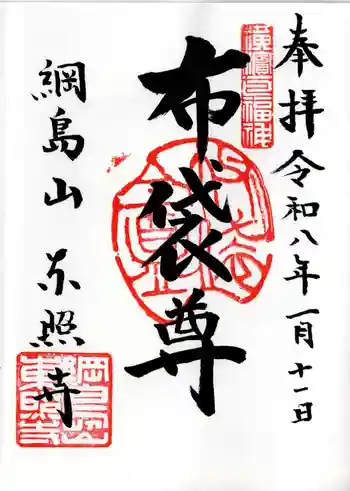 奉拝 令和八年一月十一日
横濱七福神
布袋尊
綱島山 东照寺
綱島山東照寺